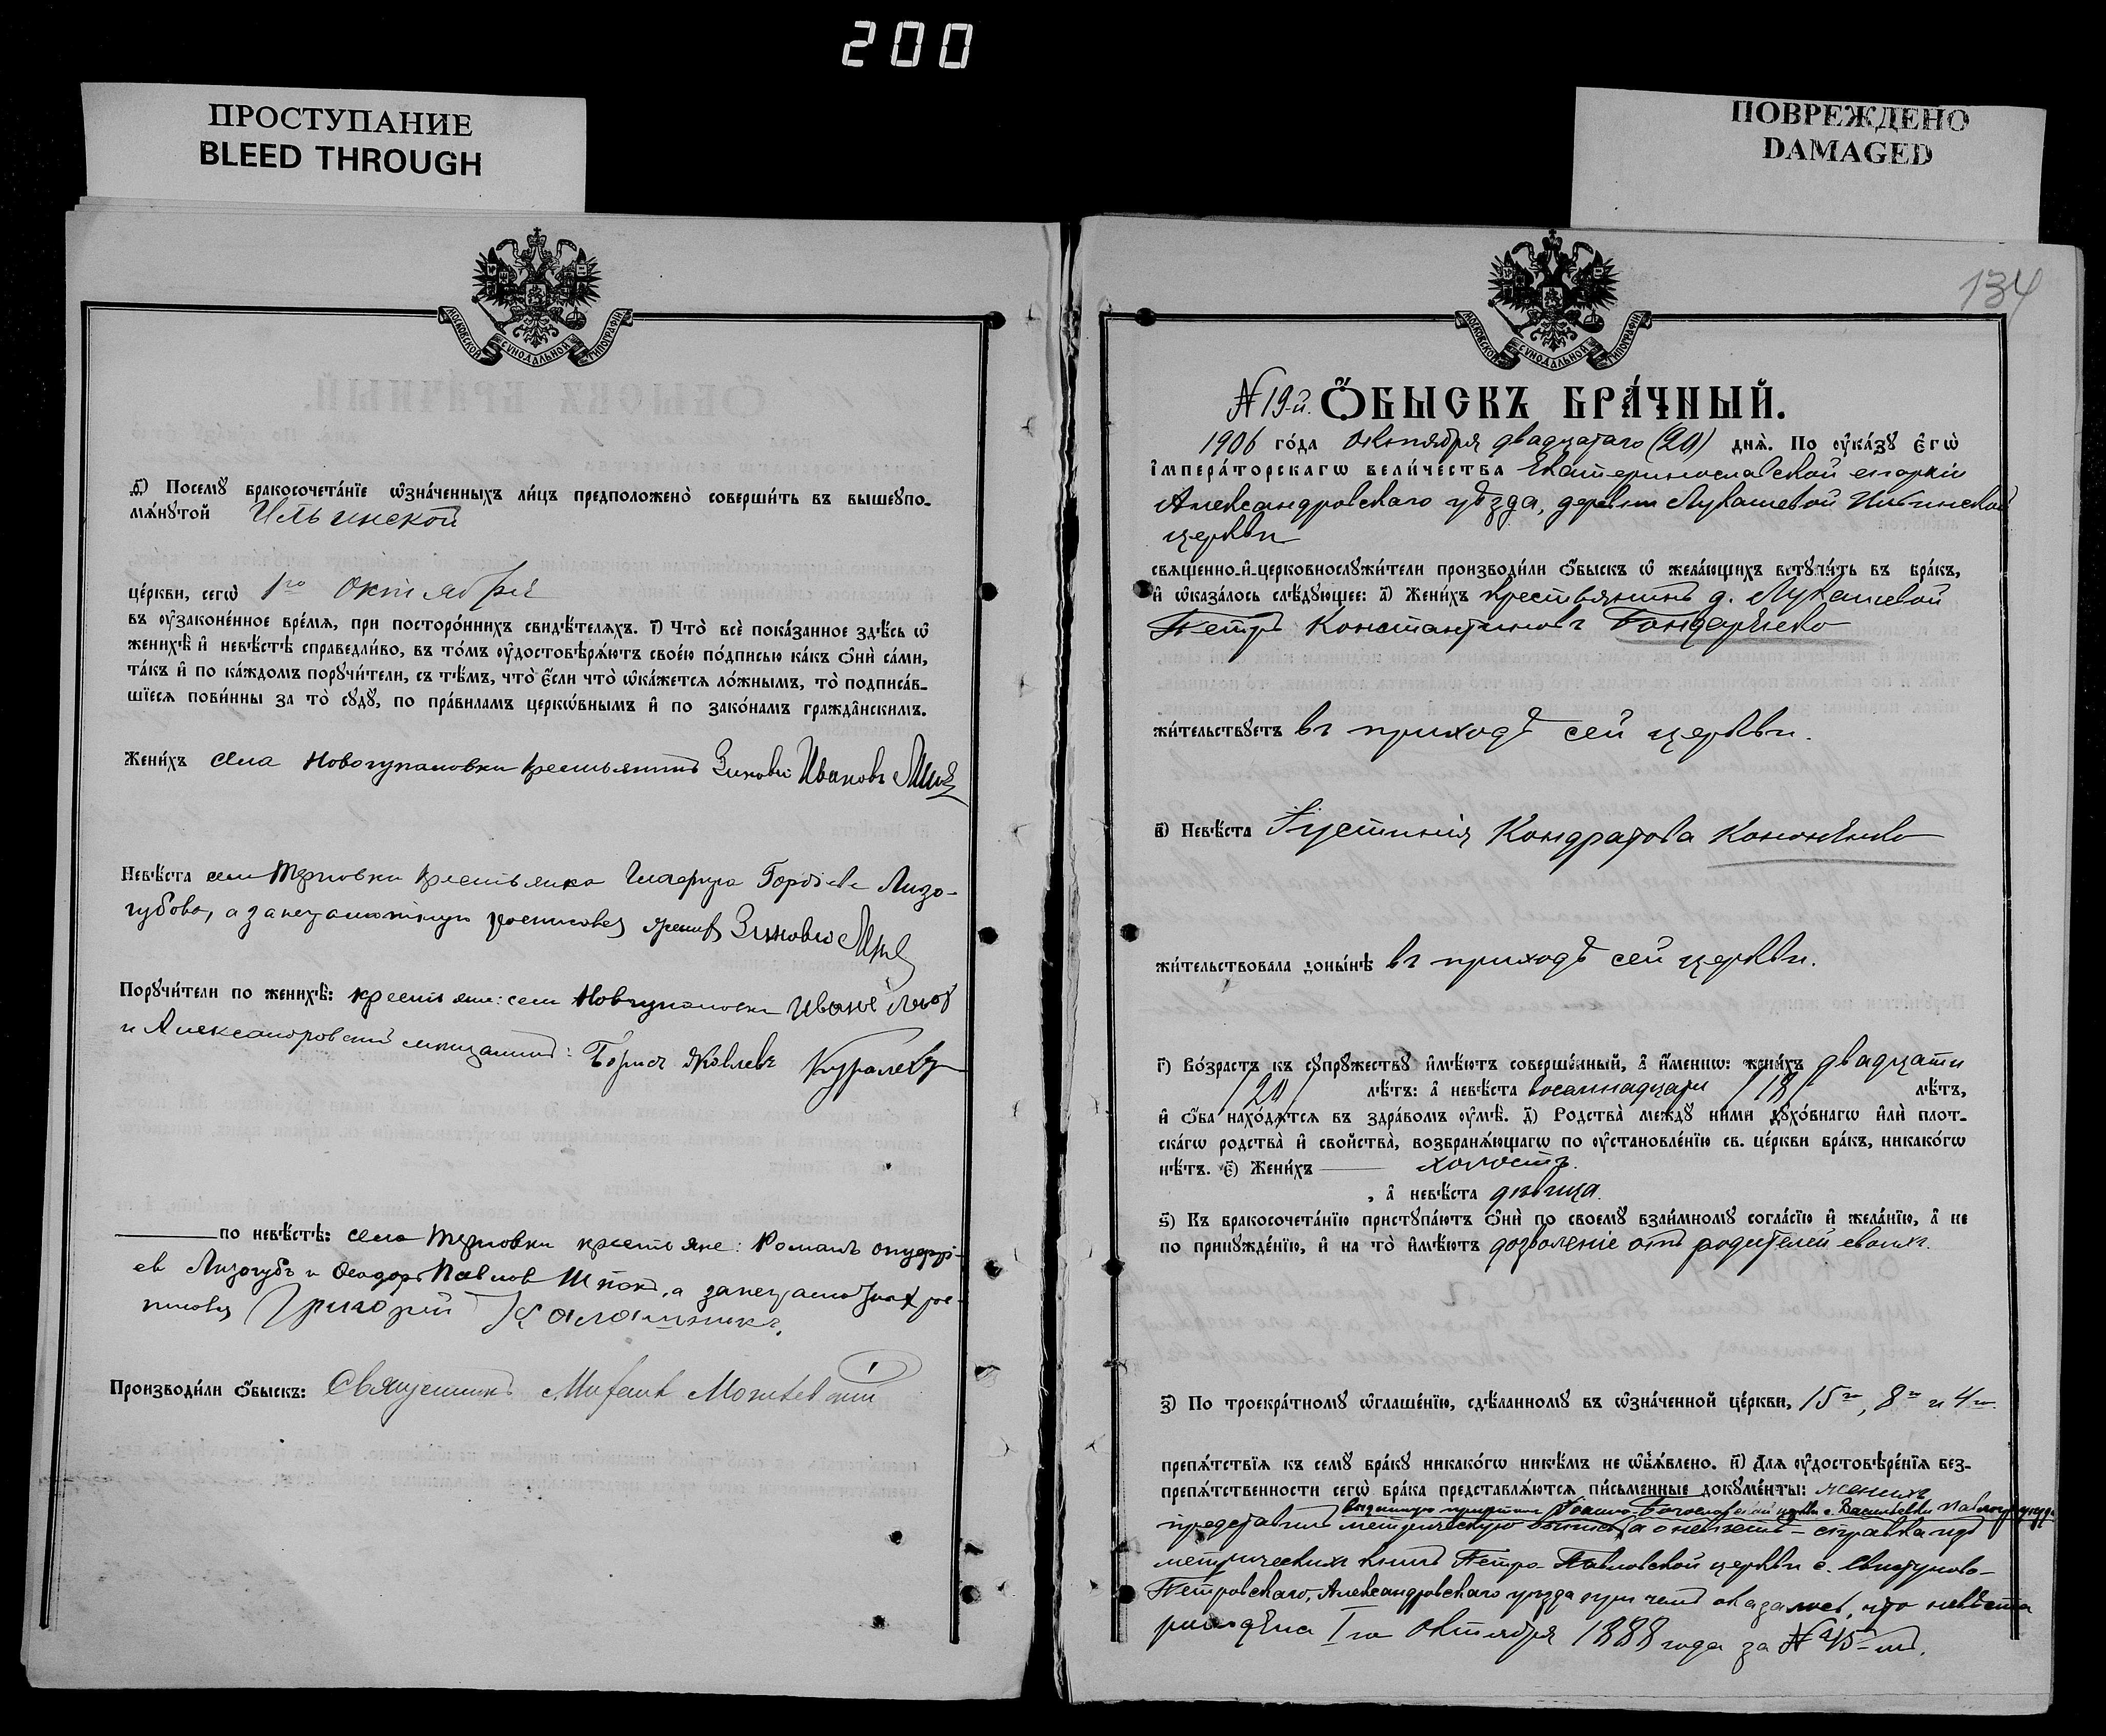 200
ПРОСТУПАНИЕ
BLEED THROUGH
МОСКОВСКОЙ СѴНОДАЛЬНОЙ ТИПОГРАФІИ
д҃) Посемꙋ бракосочета́нїе ѡ҆зна́ченныхъ ли́цъ предположено̀ соверши́ть въ вышеꙋпо-
мѧ́нꙋтой Ильинской
це́ркви, сегѡ̀ 1го октября
въ ᲂу҆зако́ненное вре́мѧ, при посторо́ннихъ свидѣ́телѧхъ. г҃і) Что̀ всѐ пока́занное здѣ́сь ѡ҆
женихѣ̀ и҆ невѣ́стѣ справедли́во, въ то́мъ ᲂу҆достовѣрѧ́ютъ свое́ю по́дписью ка́къ ѻ҆нѝ са́ми,
та́къ и҆ по ка́ждомъ порꙋчи́тели, съ тѣ́мъ, что̀ є҆́сли что̀ ѡ҆ка́жетсѧ ло́жнымъ, то̀ подписа́в-
шїесѧ пови́нны за то̀ сꙋдꙋ̀, по пра́виламъ церкѡ́внымъ и҆ по зако́намъ гражда̑нскимъ.
Жени́хъ села Новогупаловки крестьянинъ Зиновій Ивановъ
Невѣ́ста села Терновки крестьянка Гликерия Гордіева Лизо-
губова, а за неграмотную росписовся женихъ Зиновій
Порꙋчи́тели по женихѣ̀: крестьяне: села Новогупаловки Иванъ
и Александровскій мещанинъ: Борисъ Яковлевъ
по невѣ́стѣ: села Терновки крестьяне: Романъ
ев Лизогубъ и Феодоръ Павлов Шпак, а за неграмотных рос-
писовся Григорій Калашникъ.
Производи́ли ѻ҆́быскъ: Священникъ
ПОВРЕЖДЕНО
DAMAGED
134
МОСКОВСКОЙ СѴНОДАЛЬНОЙ ТИПОГРАФІИ
№ 19-й. Ѻ҆́БЫСКЪ БРА́ЧНЫЙ.
1906 го́да октября двадцатаго (20) днѧ̀. По ᲂу҆ка́зꙋ є҆гѡ̀
і҆мпера́торскагѡ вели́чества Екатеринославской епархіи
Александровскаго уѣзда, деревни Лукашевой Ильинской
церкви
свѧще́нно-и҆-церковнослꙋжи́тели производи́ли ѻ҆́быскъ ѡ҆ жела́ющихъ встꙋпи́ть въ бра́къ,
и҆ ѡ҆каза́лось слѣ́дꙋющее: а҃) Жени́хъ крестьянинъ д. Лукашевой
Петръ Константиновъ Бондаренко
жи́тельствꙋетъ въ приходѣ сей церкви.
в҃) Невѣ́ста Іустинія Кондратова Кононенко
жи́тельствовала доны́нѣ въ приходѣ сей церкви.
г҃) Во́зрастъ къ сꙋпрꙋ́жествꙋ и҆мѣ́ютъ соверше́нный, а҆ и҆́меннѡ: жени́хъ двадцати
/20/ лѣ́тъ: а҆ невѣ́ста восемнадцати /18/ лѣ́тъ,
и҆ ѻ҆́ба нахо́дѧтсѧ въ здра́вомъ ᲂу҆мѣ̀. д҃) Родства̀ междꙋ̀ ни́ми дꙋхо́внагѡ и҆лѝ плот-
ска́гѡ родства̀ и҆ сво́йства̀, возбранѧ́ющагѡ по ᲂу҆становле́нїю св. це́ркви бра́къ, никако́гѡ
нѣ́тъ. є҃) Жени́хъ холостъ.
, а҆ невѣ́ста дѣвица.
ѕ҃) Къ бракосочета́нїю пристꙋпа́ютъ ѻ҆нѝ по своемꙋ̀ взаи́мномꙋ согла́сїю и҆ жела́нїю, а҆ не
по принꙋжде́нїю, и҆ на то̀ и҆мѣ́ютъ дозволеніе отъ родителей своихъ.
з҃) По троекра́тномꙋ ѡ҆глаше́нїю, сдѣ́ланномꙋ въ ѡ҆зна́ченной це́ркви, 15го, 8го и 4го
препѧ́тствїѧ къ семꙋ̀ бра́кꙋ никако́гѡ никѣ́мъ не ѡ҆б̾ѧ́влено. и҃) Длѧ ᲂу҆достовѣре́нїѧ без-
препѧ́тственности сегѡ̀ бра́ка представлѧ́ютсѧ пи́сьменные докꙋме́нты: женихъ
выданную причтомъ Іоанно-Богословской церкви с. Васильевки Павлогр. уезда
представилъ метрическую выпись, а о невестѣ – справка изъ
метрическихъ книгъ Петро-Павловской церкви с. Свистуново-
Петровскаго, Александровскаго уѣзда при чемъ оказалось, что невѣста
рождена 1го октября 1888 года за № 45-мъ.